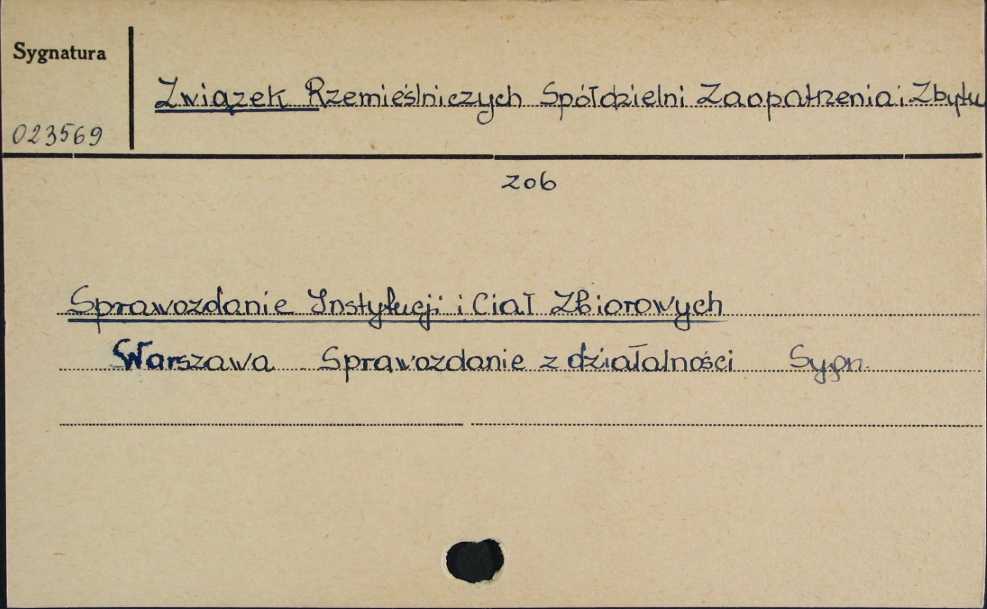 Sygnatura
Związek Rzemieślniczych Spółdzielni Zaopatrzenia i Zbytu
023569
zob
Sprawozdanie Instytucji i Ciał Zbiorowych
Warszawa Sprawozdanie z działalności Sygn.